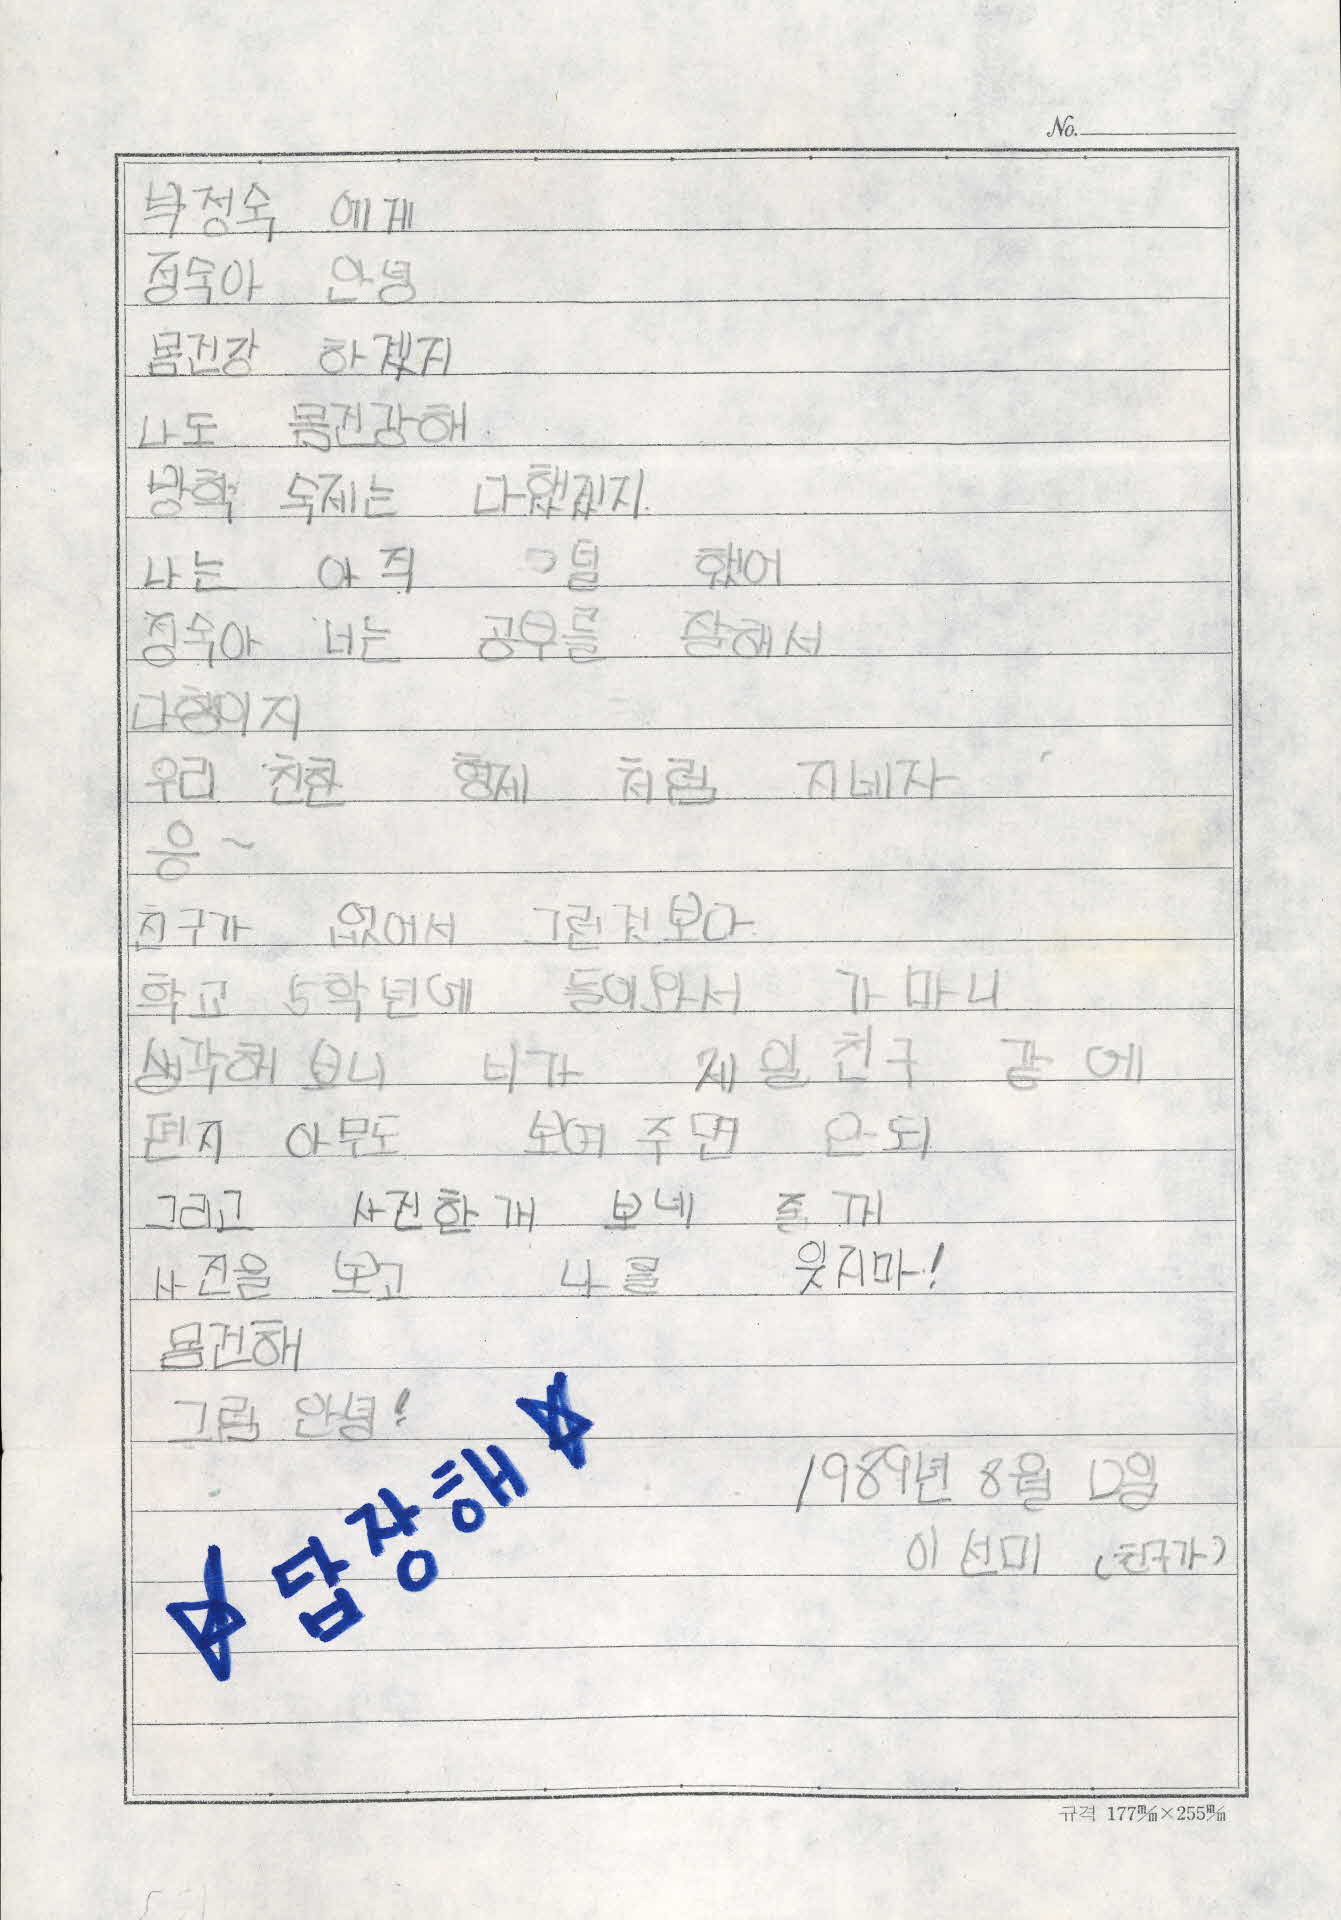 No.
박정숙 에게
정숙아 안녕
몸건강 하겠지
나도 몸건강해
방학 숙제는 다했겠지
나는 아직 덜 했어
정숙아 너는 공부를 잘해서
다행이지
우리 친한 형제 처럼 지네자
응~
친구가 없어서 그런것보다
학교 5학년에 들어와서 가마니
생각해 보니 니가 제일친구 같에
편지 아무도 보여주면 안되
그리고 사진한개 보네 줄께
사진을 보고 나를 웃지마!
몸건해
그럼 안녕!
☆ 답장해 ☆
1989년 8월 일
이선미 (친구가)
규격 177㎜×255㎜